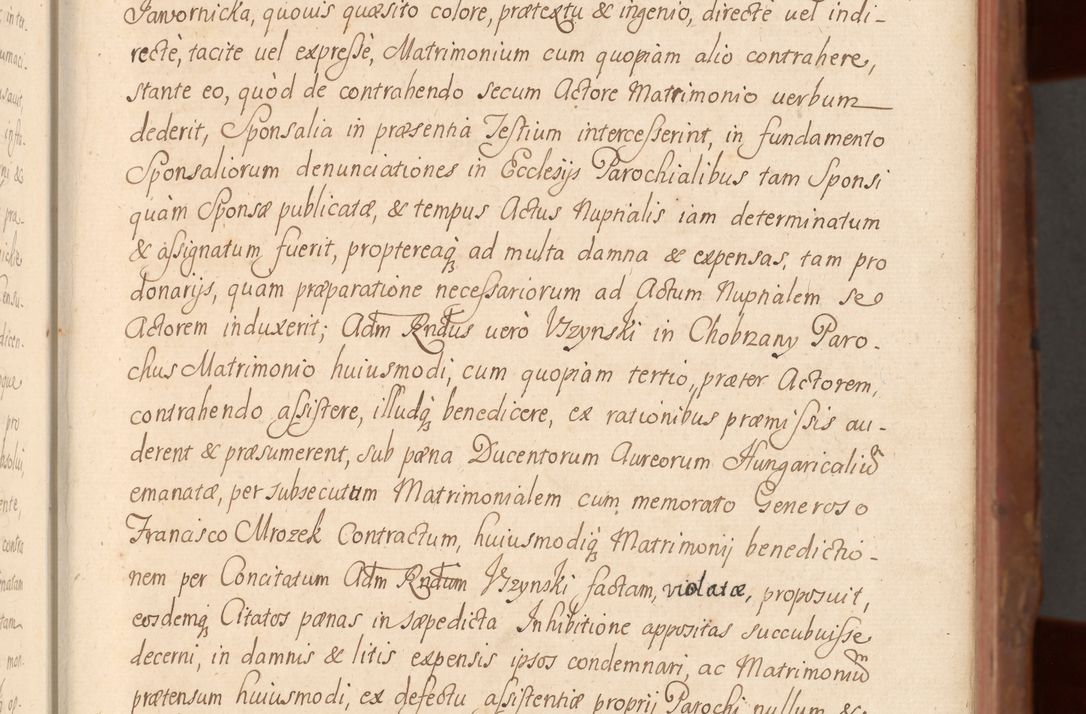 Jawornicka, quovis quæsito colore, prætextu & ingenio, directè vel indi-
rectè, tacite vel expressè, Matrimonium cum quopiàm alio contrahere,
stante eo, quòd de contrahendo secum Actore Matrimonio verbum
dederit, Sponsalia in præsentia Testium intercesserint, in fundamento
Sponsaliorum denunciationes in Ecclesijs Parochialibus tam Sponsi
quàm Sponsæ publicatæ, & tempus Actus Nuptialis iam determinatum
& assignatum fuerit, proptereaq́ꝫ ad multa damna & expensas, tam pro
donarijs, quam præparatione necessariorum ad Actum Nuptialem se
Actorem induxerit; Adm Rndus verò Vrzynski in Chobrzany Paro-
chus Matrimonio huiusmodi, cum quopiam tertio, præter Actorem,
contrahendo assistere, illudq́ꝫ benedicere, ex rationibus præmissis au-
derent & præsumerent, sub pæna Ducentorum Aureorum Hungaricaliũ
emanatæ, per subsecutam Matrimonialem cum memorato Generoso
Francisco Mrozek Contractum, huiusmodiq́ꝫ Matrimonij benedictio-
nem per Concitatum Adm Rndum Vrzynski factam, violatæ, proposuit,
eosdemq́ꝫ Citatos pænas in sæpedicta Inhibitione appositas succubuisse
decerni, in damnis & litis expensis ipsos condemnari, ac Matrimoniũ
prætensum huiusmodi, ex defectu assistentiæ proprij Parochi nullum &